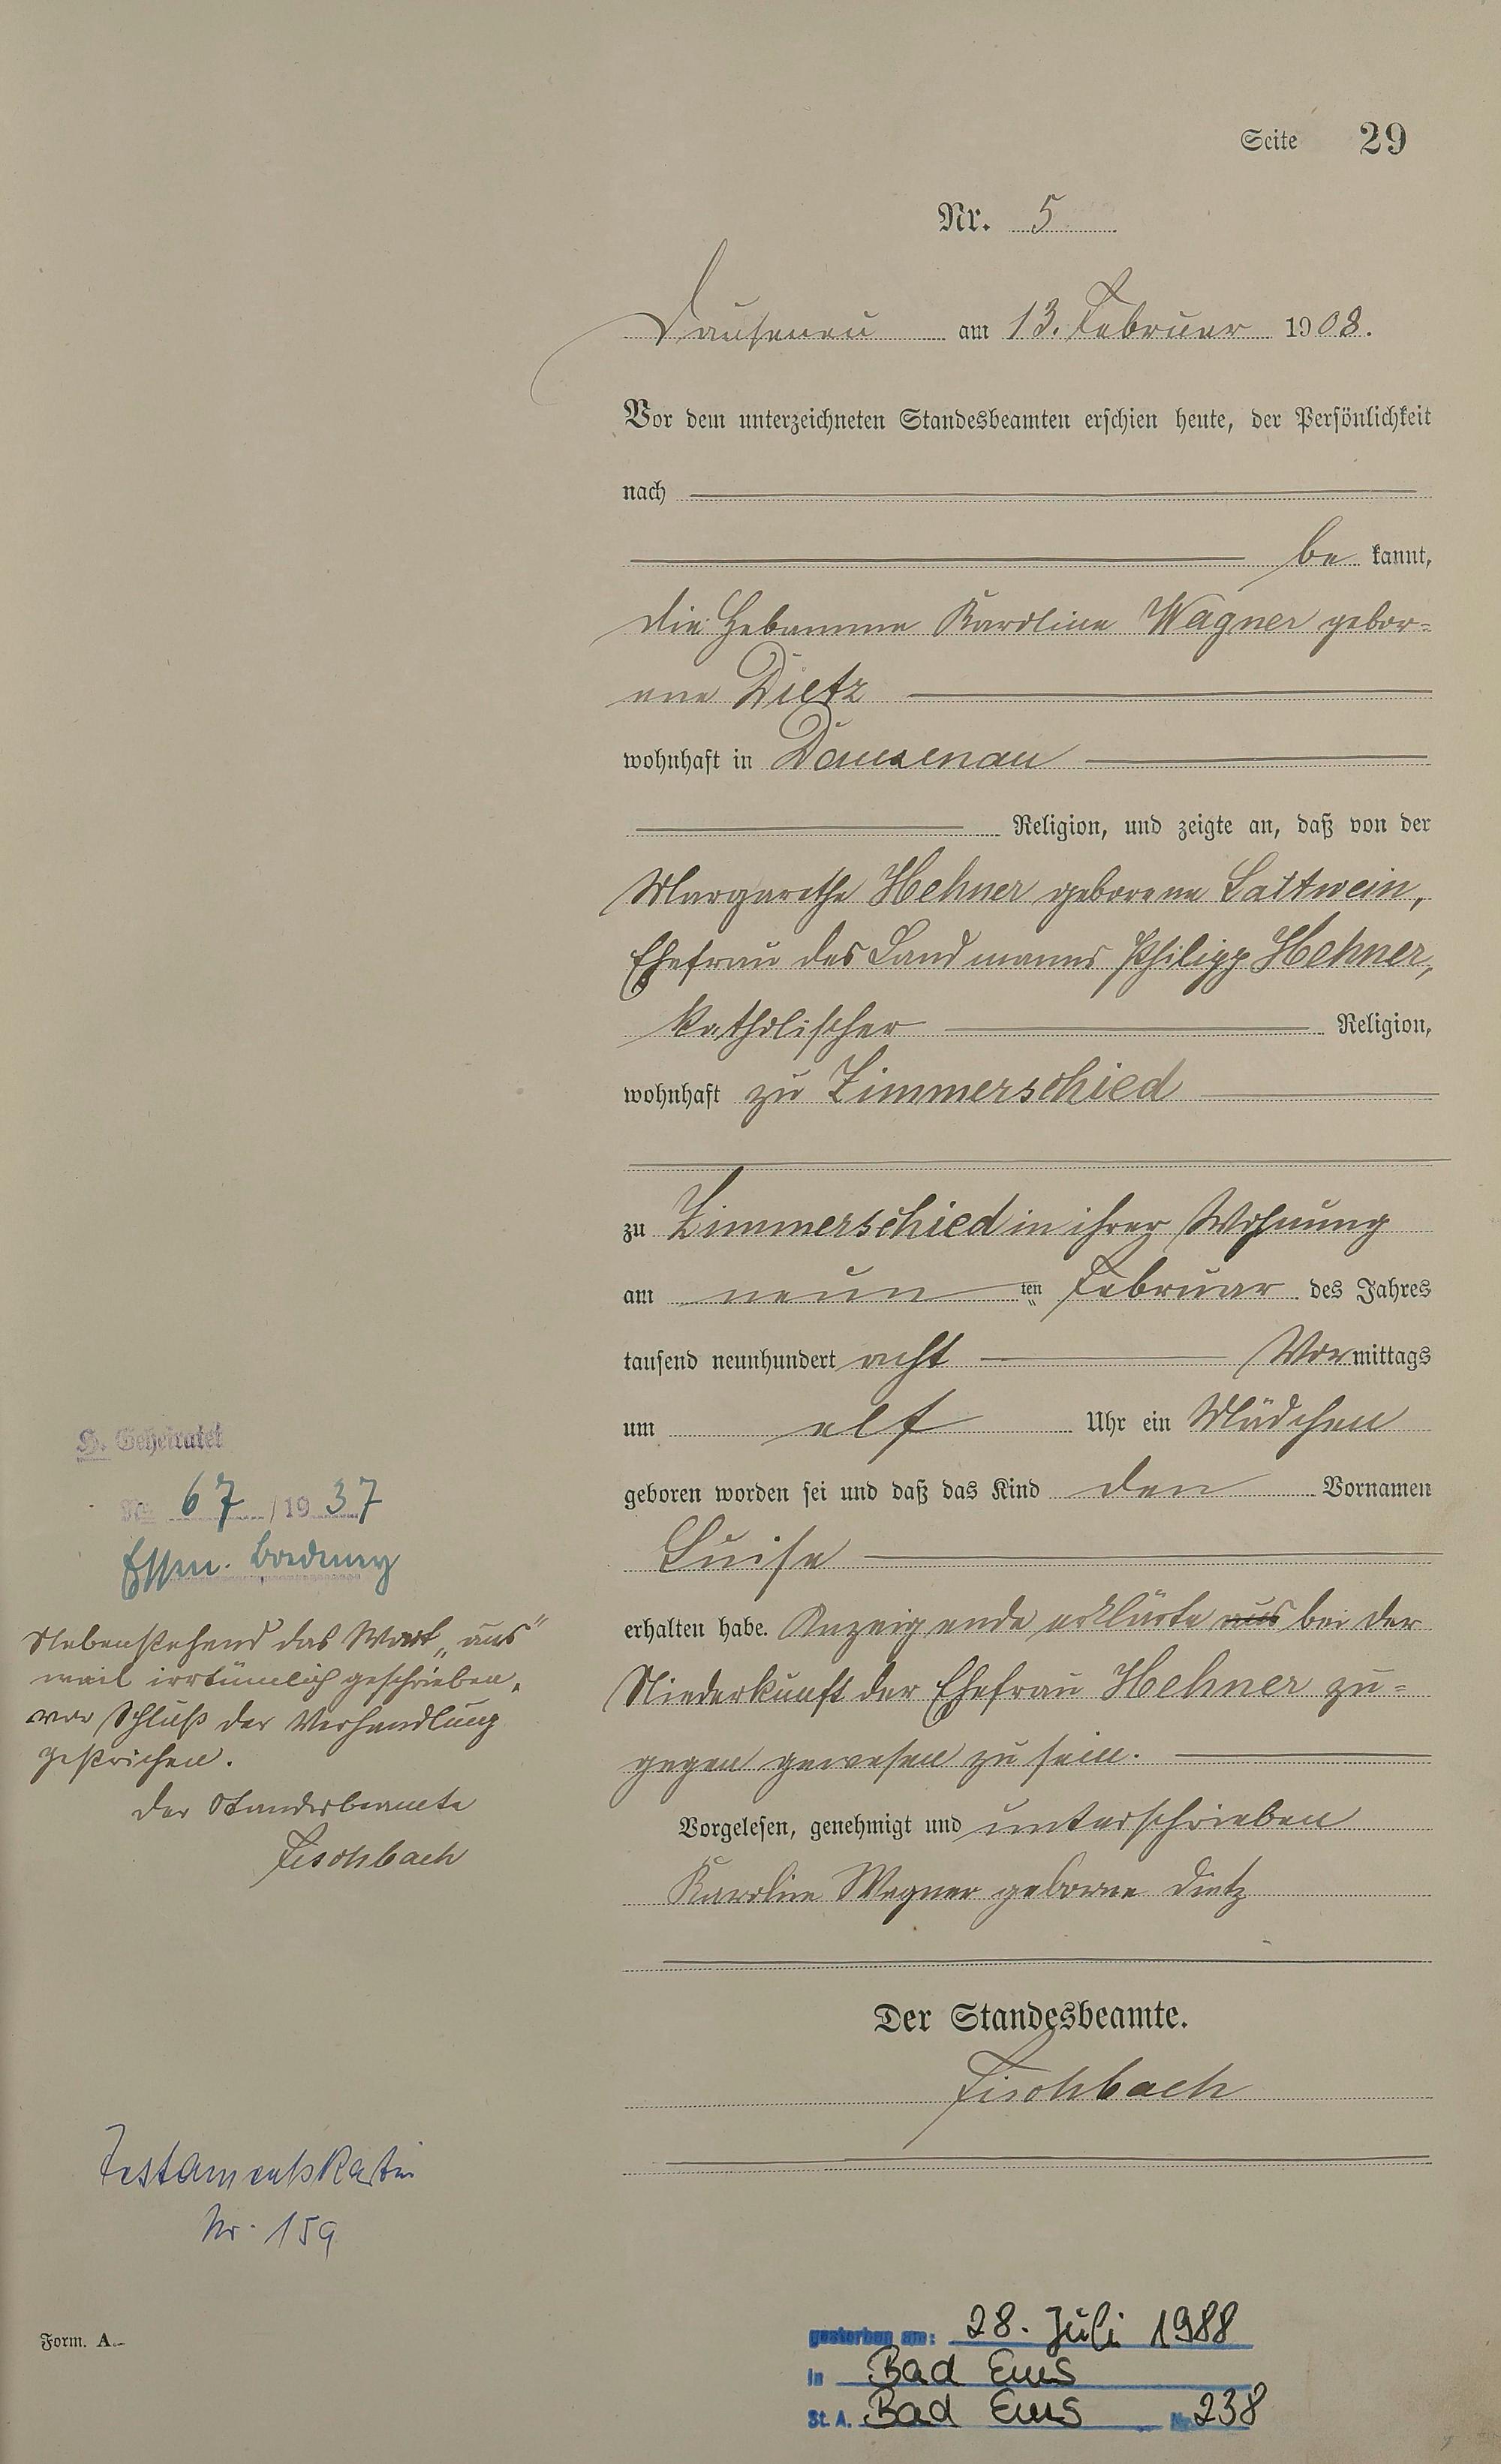 Seite 29
Nr. 5
Dausenau am 13. Februar 1908.
Vor dem unterzeichneten Standesbeamten erschien heute, der Persönlichkeit
nach
be kannt,
die Hebamme Karoline Wagner gebor=
ene Dietz
wohnhaft in Dausenau
Religion, und zeigte an, daß von der
Margarethe Hehner geborene Lattwein,
Ehefrau des Landmanns Philipp Hehner,
katholischer Religion,
wohnhaft zu Zimmerschied
zu Zimmerschied in ihrer Wohnung
am neun ten Februar des Jahres
tausend neunhundert acht Vormittags
um elf Uhr ein Mädchen
geboren worden sei und daß das Kind den Vornamen
Luise
erhalten habe. Anzeigende erklärte aus bei der
Niederkunft der Ehefrau Hehner zu=
gegen gewesen zu sein.
Vorgelesen, genehmigt und unterschrieben
Karoline Wagner geborne Dietz
Der Standesbeamte.
Fischbach
H. Geheiratet
Nr. 67 / 1937
Essen-Bredeney
Nebenstehend das Wort „aus"
weil irrtümlich geschrieben,
vor Schluß der Verhandlung
gestrichen.
Der Standesbeamte
Fischbach
Testamentskartei
Nr. 159
Form. A.
gestorben am: 28. Juli 1988
in Bad Ems
St. A. Bad Ems Nr. 238